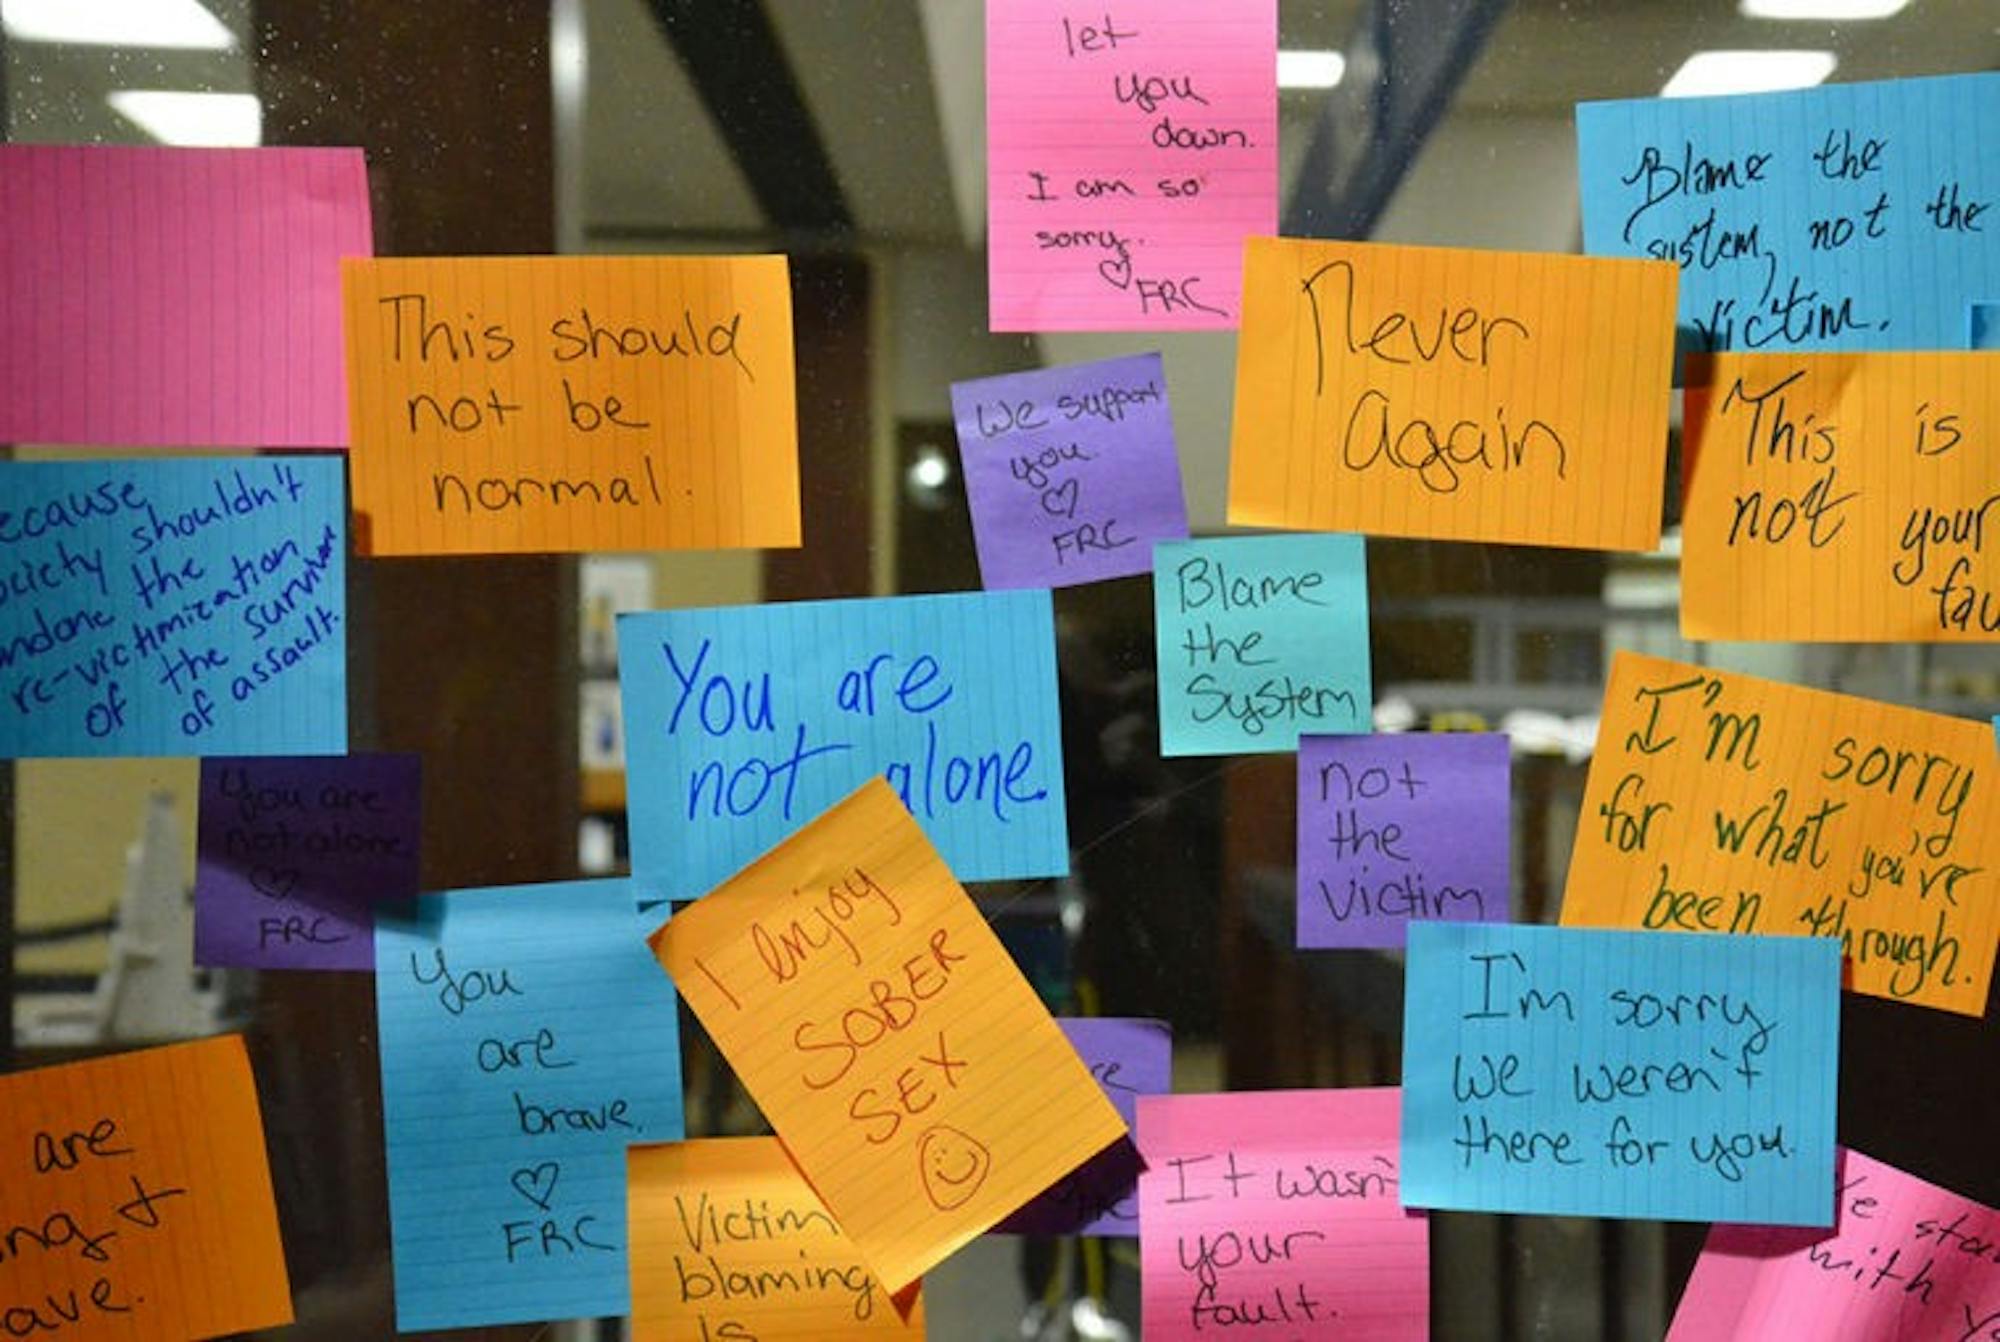 let
you
down.
I am so
sorry.
♡ FRC
Blame the
system, not the
victim.
This should
not be
normal.
We support
you.
♡
FRC
Never
Again
This is
not your
fau
ecause
ociety shouldn't
ndone the
re-victimization
of the survivor
of assault.
You are
not alone.
Blame
the
System
not
the
victim
I'm sorry
for what you'd
you've
been through.
You are
not alone
♡
FRC
You
are
brave.
♡
FRC
I enjoy
SOBER
SEX
I'm sorry
we weren't
there for you.
are
ng +
ave.
Victim
blaming
is
re
It wasn't
your
fault.
e sta
with y